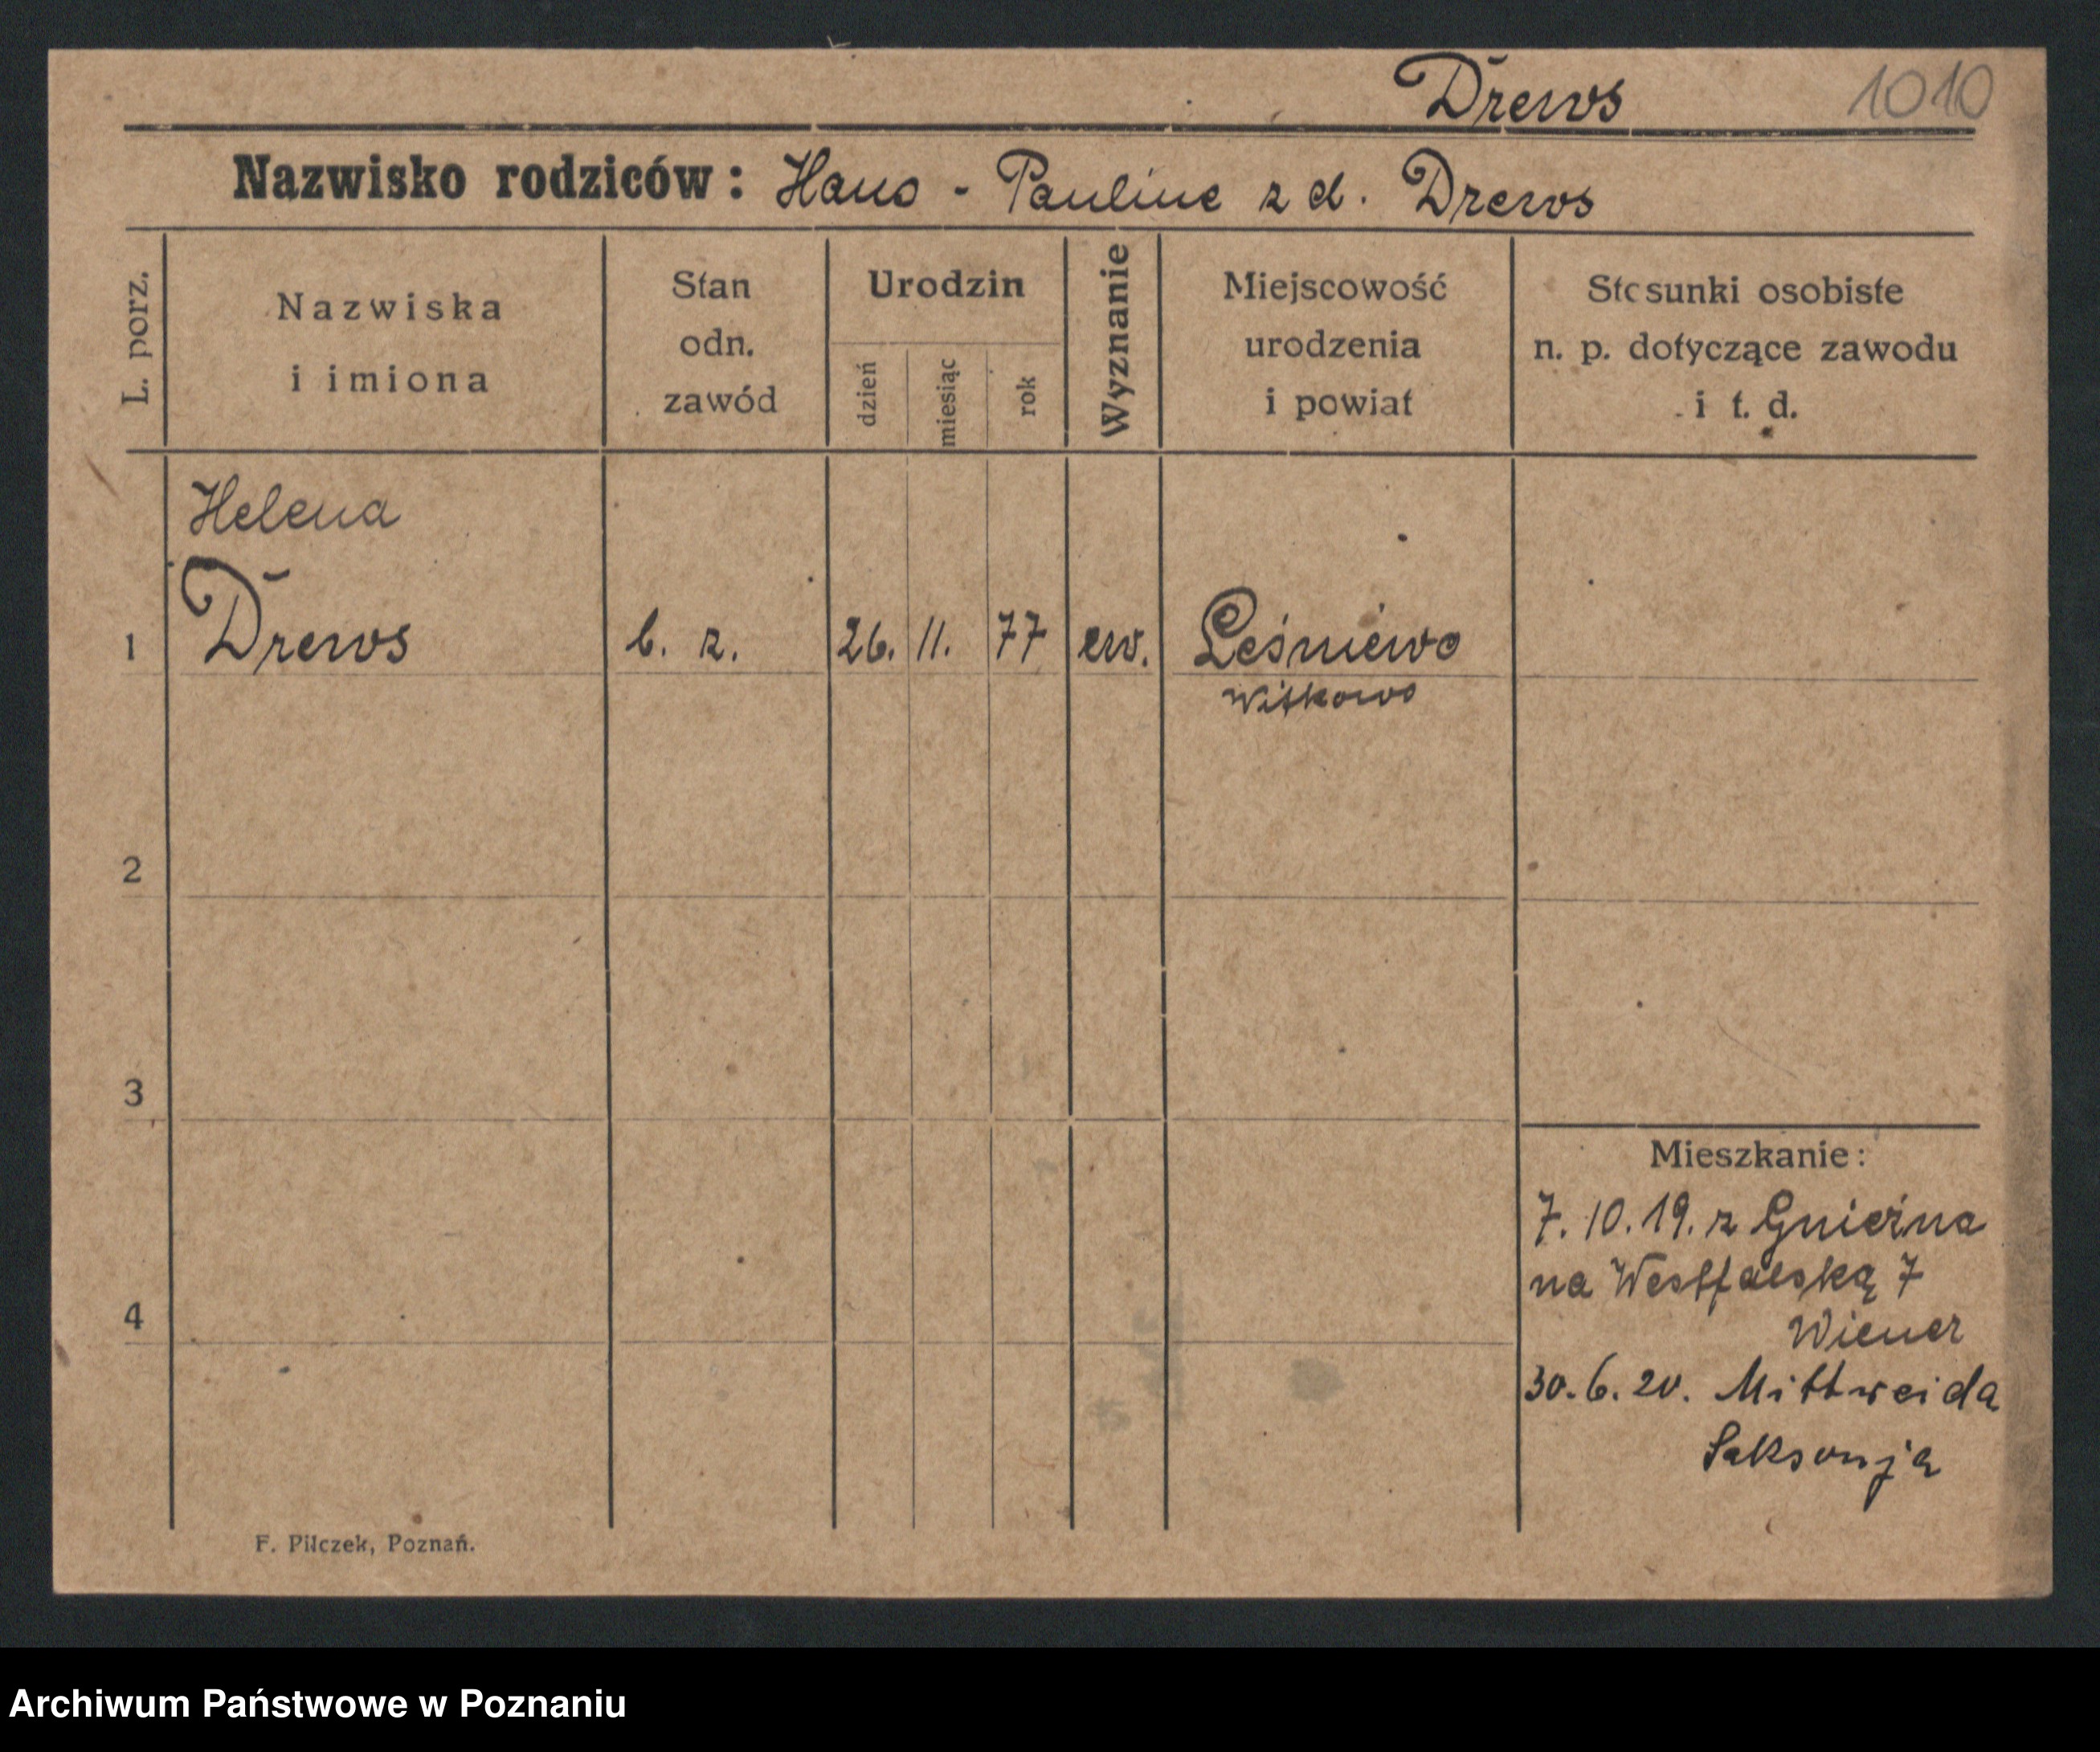 Drews 1010
Nazwisko rodziców: Hans - Pauline z d. Drews
L. porz.
Nazwiska
i imiona
Stan
odn.
zawód
Urodzin
dzień
miesiąc
rok
Wyznanie
Miejscowość
urodzenia
i powiat
Stosunki osobiste
n. p. dotyczące zawodu
i t. d.
Helena
1 Drews b. z. 26. 11. 77 ew. Leśniewo
Witkowo
2
3
Mieszkanie:
7. 10. 19. z Gniezna
na Westfalską 7
4
Wiener
30. 6. 20. Mittweida
Saksonja
F. Pilczek, Poznań.
Archiwum Państwowe w Poznaniu